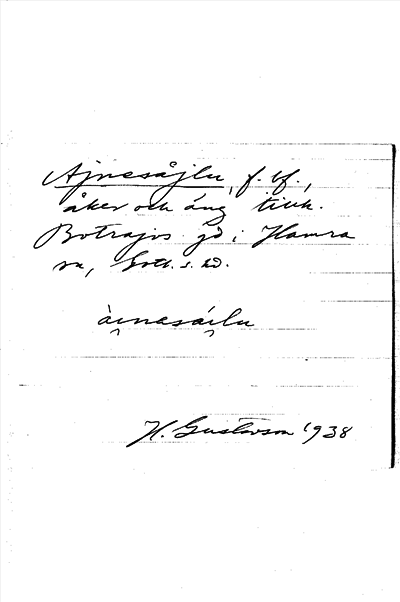 Ajnesåjlu, f. bf.,
åker och äng tillh.
Botrajvs gd i Hamra
sn, Gotl. s. hd.
àı̯nesáı̯lu
H. Gustavson 1938